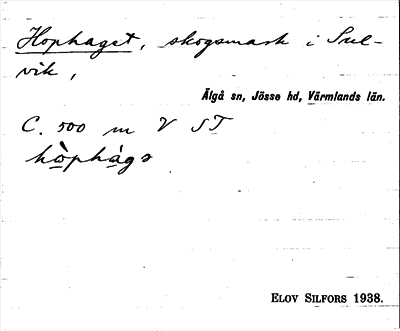 Hophaget, skogsmark i Sul-
vik,
Älgå sn, Jösse hd, Värmlands län.
C. 500 m V ST
hòphàgə
ELOV SILFORS 1938.